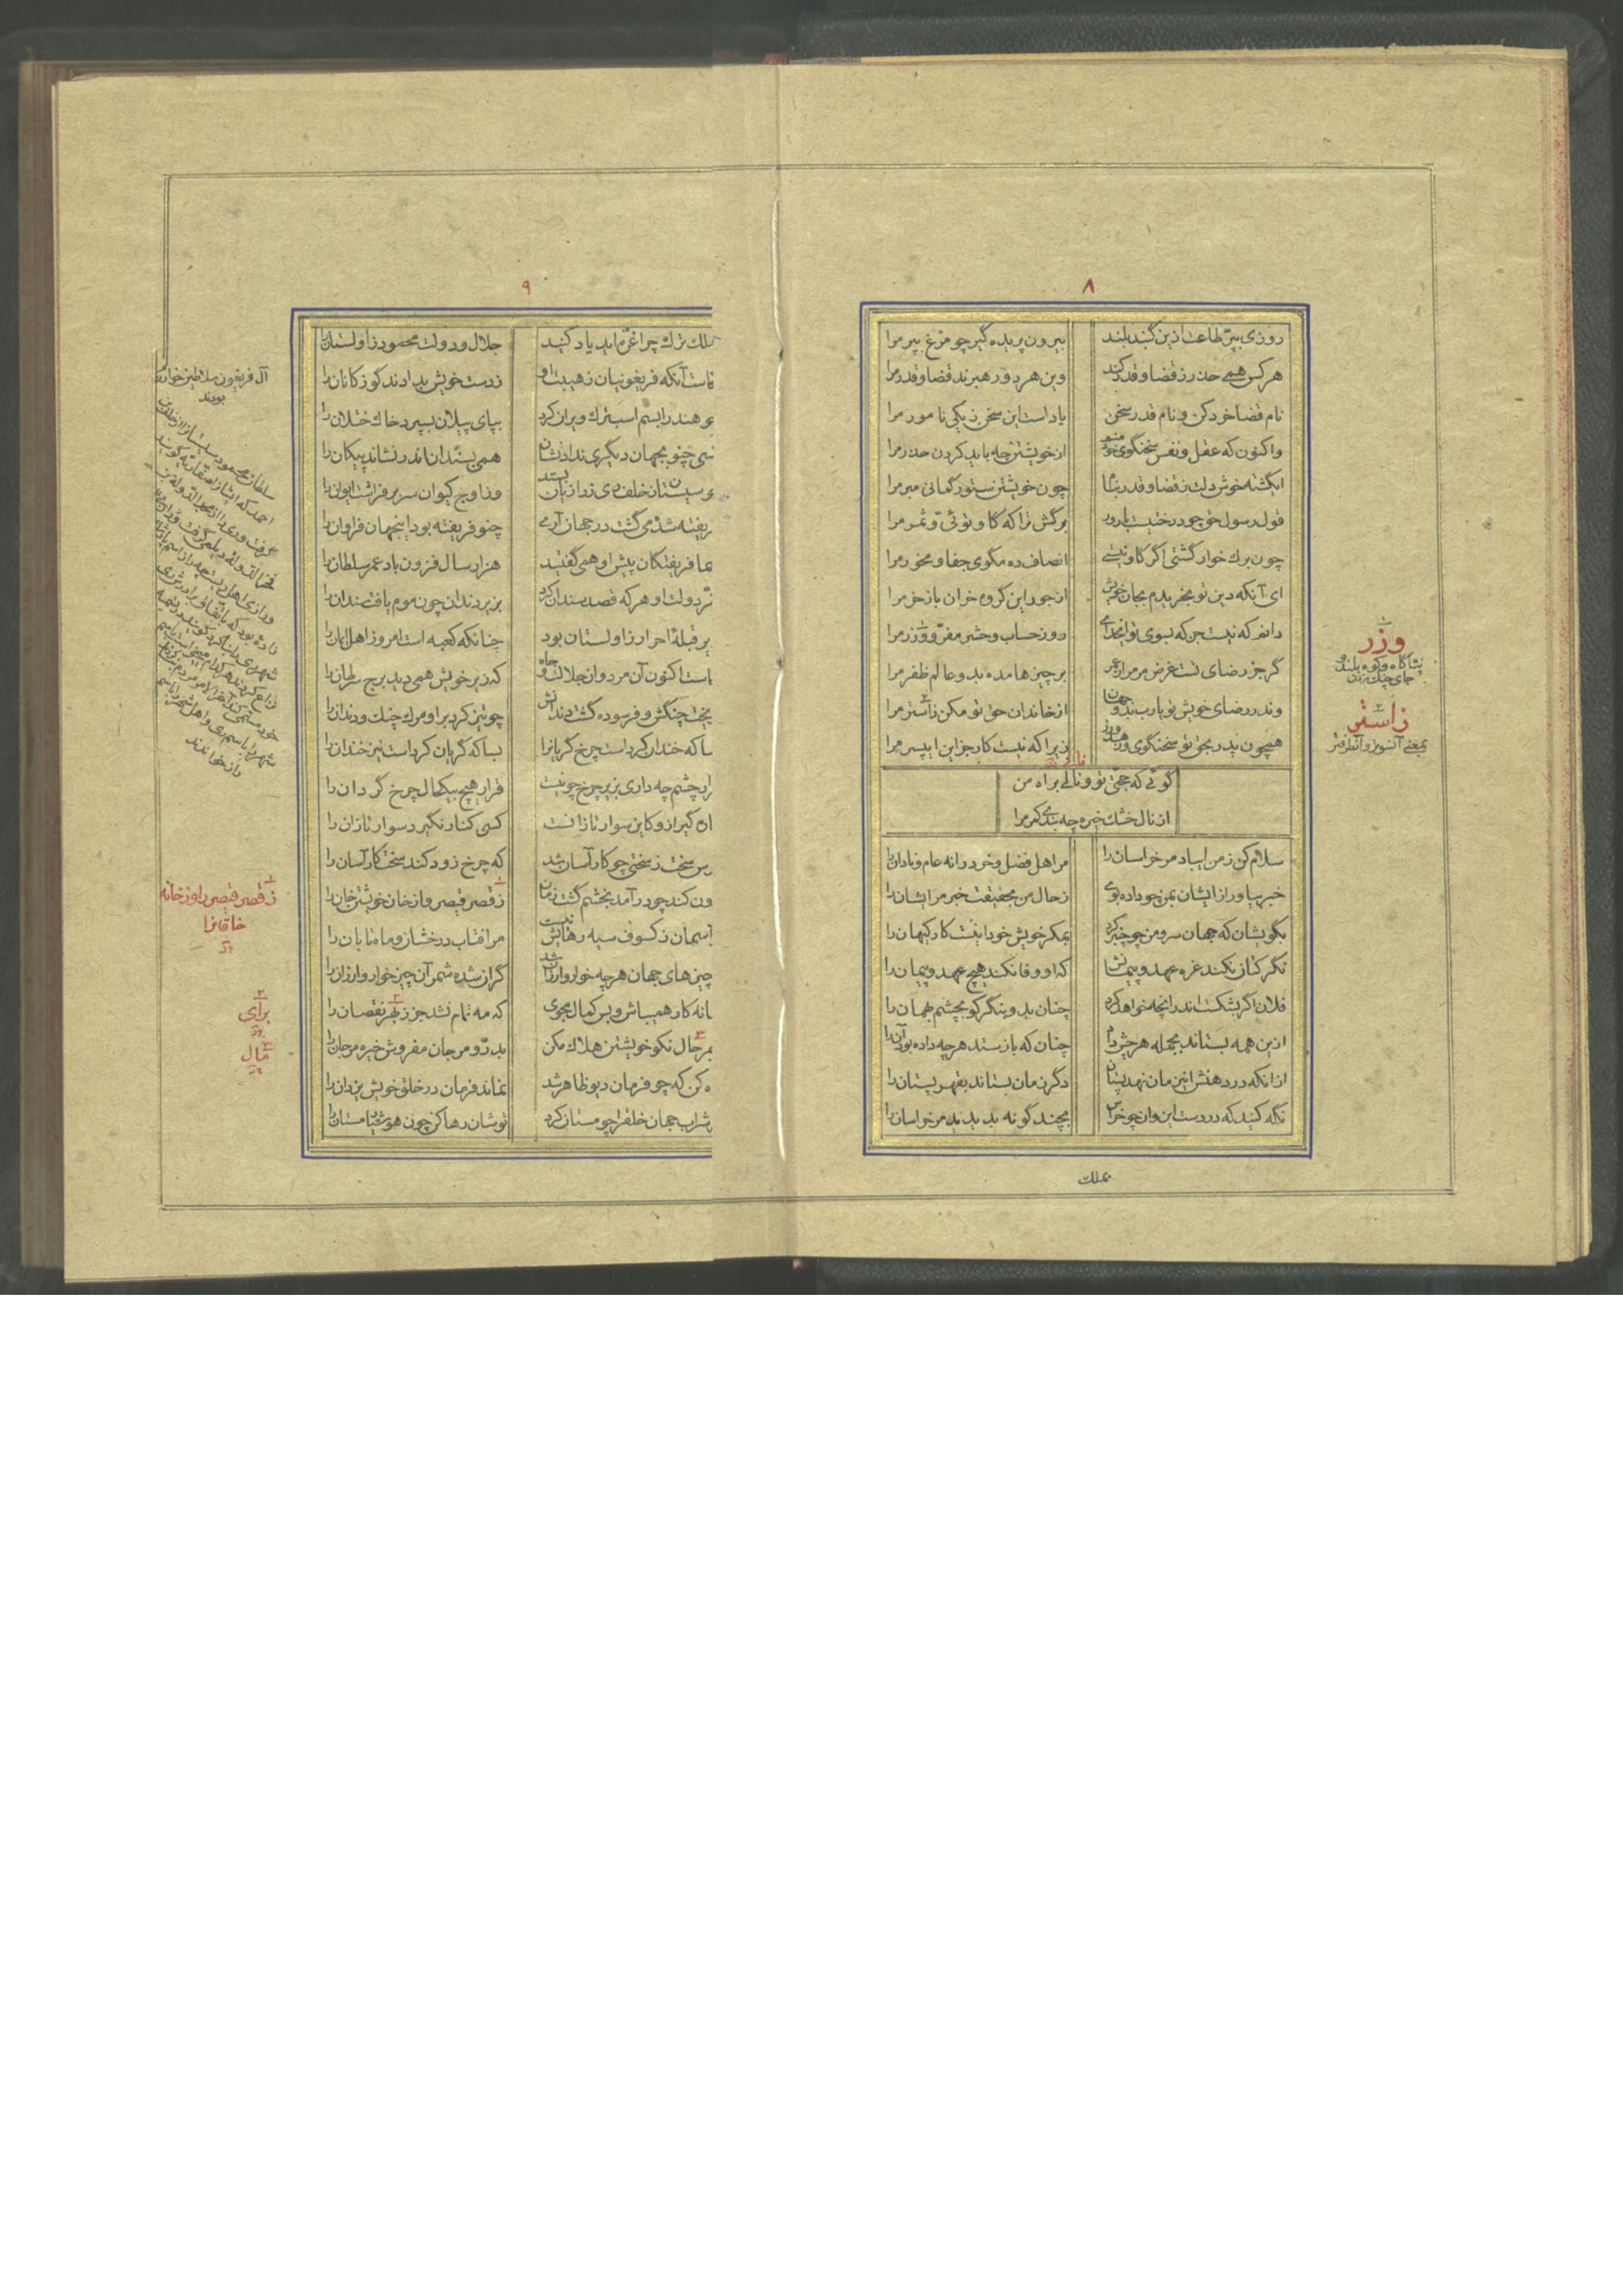 ۸
روزی بپرّ طاعت ازین گنبد بلند
بیرون پریده گیر چو مرغ بپر مرا
هرکس همی حذر ز قضا و قدر کند
وین هر دو رهبرند قضا و قدر مرا
نام قضا خرد کن و نام قدر سخن
یاد است این سخن ز یکی نامور مرا
واکنون که عقل و نفس سخنگوی خود منم
از خویشتن چه باید کردن حذر مرا
ایگشته خوش دلت ز قضا و قدر بنام
چون خویشتن ستور گمانی مبر مرا
قول رسول حق چو درختیست بارور
برگش ترا که گاو توئی و ثمر مرا
چون برگ خوار گشتی اگر گاو نیستی
انصاف ده مگوی جفا و مخور مرا
ای آنکه دین تو بخریدم بجان خویش
از جور این گروه خران باز خر مرا
دانم که نیست جز که بسوی تو ایخدای
روز حساب و حشر مفرّ و وزر مرا
گر جز رضای تست غرض مر مرا ز عمر
بر چیزها مده بدو عالم ظفر مرا
وندر رضای خویش تو یارب بدو جهان
از خاندان حق تو مکن زاستر مرا
همچون پدر بحق تو سخنگوی و زهد ورز
زیرا که نیست کار جز این ای پسر مرا
گوئی که حجّتی تو و نالی براه من
از نال خشک خیره چه بندی کمر مرا
سلام کن ز من ایباد مر خراسان را
مر اهل فضل و خرد را نه عام و نادان را
خبر بیاور ازایشان بمن چو داده بوی
ز حال من بحقیقت خبر مر ایشان را
بگویشان که جهان سرو من چو چنبر کرد
بمکر خویش خود اینست کار کیهان را
نگر کتان نکند غره عهد و پیمانش
که او وفا نکند هیچ عهد و پیمان را
فلان اگر بشکست اندر انچه خواهد کرد
چنان بدو بنگر کو بچشم بهمان را
ازین همه بستاند بجمله هر چش داد
چنان که باز ستد هرچه داده بود آن را
از آنکه در دهنش این زمان نهد پستان
دگر زمان بستاند بقهر پستان را
نگه کنید که در دست این و آن چو خراس
بچند گونه بدیدید مر خراسان را
بملک
وزر
پناگاه و کوه بلند و
جای چنگ زدن
زاستر
بمعنی آنسوتر و آنطرفتر
۹
بملک ترک چرا غرّه‌اید یاد کنید
جلال و دولت محمود زاولستان را
کجاست آنکه فریغونیان ز هیبت او
ز دست خویش بدادند گوزکانان را
چو هند را بسم اسب ترک ویران کرد
بپای پیلان بسپرد خاک ختلان را
کسی چنو بجهان دیگری نداد نشان
همی بسندان اندر نشاند پیکان را
چو سیستان ز خلف ری ز رازیان بستد
وز اوج کیوان سر برفراشت ایوان را
فریفته شده میگشت در جهان آری
چنو فریفته بود اینجهان فراوان را
شما فریفتگان پیش او همی گفتید
هزار سال فزون باد عمر سلطان را
بفرّ دولت او هر که قصد سندان کرد
بزیر دندان چون موم یافت سندان را
پریر قبلهٔ احرار زاولستان بود
چنانکه کعبه است امروز اهل ایمان را
کجاست اکنون آن مرد و آن جلالت و جاه
که زیر خویش همی دید برج سرطان را
بریخت چنگش و فرسوده گشت دندانش
چو تیز کرد بر او مرگ چنگ و دندان را
بسا که خندان کرداست چرخ گریان را
بسا که گریان کرداست نیز خندان را
قرار چشم چه داری بزیر چرخ چو نیست
قرار هیچ بیکحال چرخ گردان را
کسی کنار نگیرد سوار تازان را
بترس سخت ز سختی چو کار آسان شد
که چرخ زود کند سخت کار آسان را
برون کند چو درآمد بخشم گشت زمان
ز قصر قیصر و از خان خویشتن خان را
بر آسمان ز کسوف سیه رهایش نیست
مر آفتاب درخشان و ماه تابان را
ز چیزهای جهان هرچه خوار و ارزان شد
گران شده شمر آن چیز خوار و ارزان را
میانه کار همیباش و بس کمال مجوی
که مه تمام نشد جز ز بهر نقصان را
ز بهر حال نکو خویشتن هلاک مکن
بدرّ و مرجان مفروش خیره مر جان را
نگاه کن که چو فرمان دیو ظاهر شد
نماند فرمان در خلق خویش یزدان را
شراب جهان خلق را چو مستان کرد
توشان رها کن چون هوشیار مستان را
آل فریغون سلاطین خوارزم
بودند
سلطان محمود سیستانرا از خلف بن
ز قصر قیصر را و ز خانه
خاقانرا
برای
مال